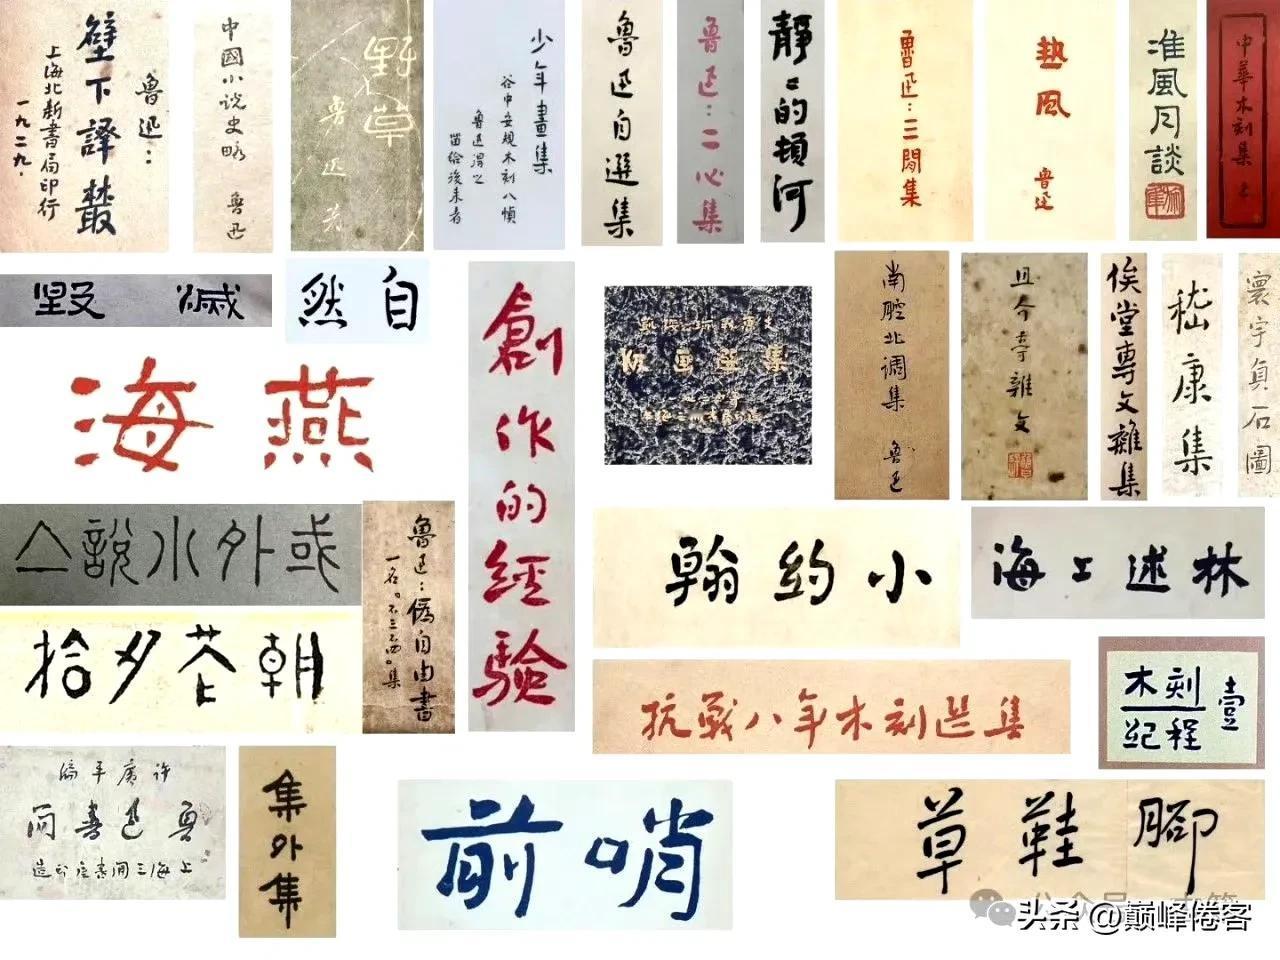 壁下譯叢
魯迅：
上海北新書局印行
一九二九.
中國小说史略
魯迅
野草
魯迅著
少年畫集
谷中安規木刻八幀
魯迅得之
留給後来者
魯迅自選集
魯迅：二心集
靜〻的頓河
魯迅：三閒集
热風
魯迅
准風月談
中華木刻集
毀滅
然自
海燕
創作的經驗
南腔北调集
魯迅
且介亭雜文
俟堂専文雜集
嵇康集
寰宇貞石圖
亼說小外或
拾夕花朝
魯迅：偽自由書
一名“不三不四”集
翰約小
海上述林
抗戰八年木刻選集
木刻
紀程
壹
編平廣許
簡書迅魯
集外集
前哨
草鞋腳
头条 @巅峰倦客